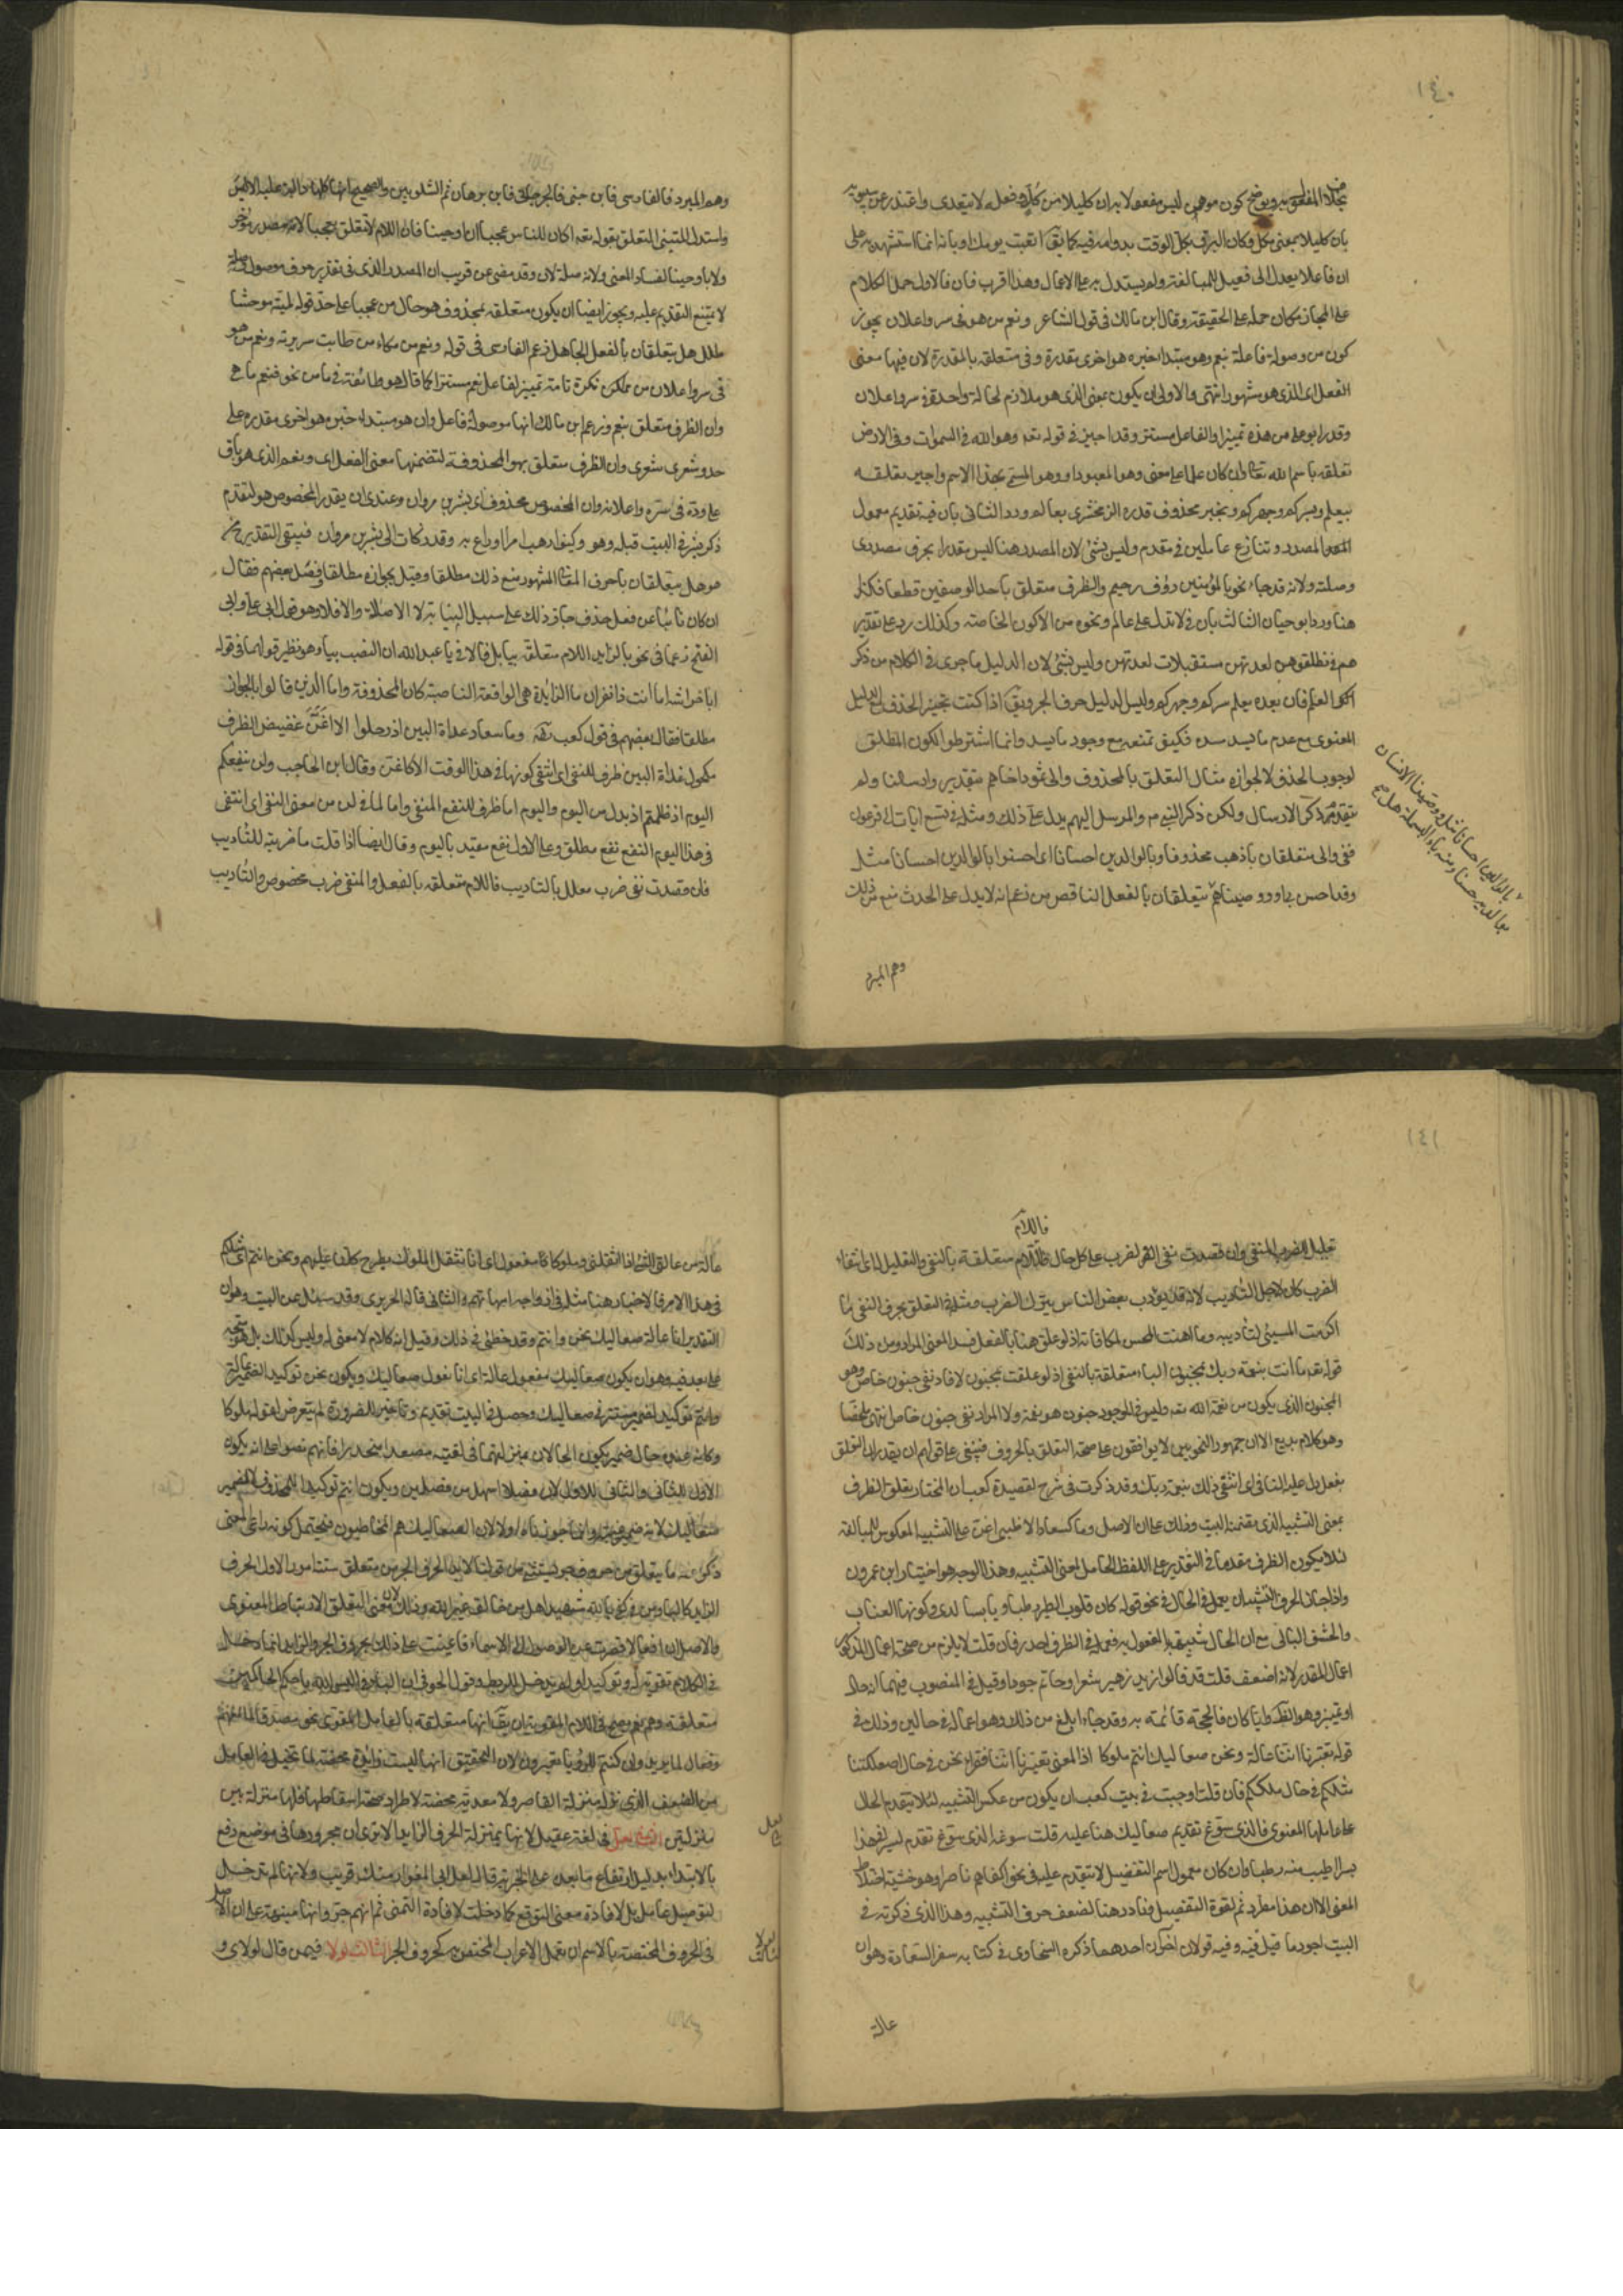 ١٤٠
بخلاف المفعول به ويوضح كون موهن ليس مفعولا به ان كليلا من كل وفعله لا يتعدى واعتذر عن سيبويه
بان كليلا بمعنى مكل وكان البرق يكل الوقت بدوامه فيه كما يق اتعبت يومك او بانه انما استشهد به على
ان فاعلا يعدل الى فعيل للمبالغة ولم يستدل به على الاعمال وهذا اقرب فان في الاول حمل الكلام
على المجاز مع امكان حمله على الحقيقة وقال ابن مالك في قول الشاعر ونعم من هو في سر واعلان يجوز
كون من موصولة فاعلة بنعم وهو مبتدا خبره هو اخرى مقدرة وفي متعلقة بالمقدرة لان فيها معنى
الفعل اي الذي هو مشهور انتهى والاولى ان يكون بمعنى الذي هو ملازم لحالة واحدة في سر واعلان
وقدر ابو علي من هذه تمييزا والفاعل مستتر وقد اجيز في قوله تعه وهو الله في السموات وفي الارض
تعلقه باسم الله تعالى وان كان علما على معنى وهو المعبود او وهو المسمى بهذا الاسم واجيز تعلقه
بيعلم وبسركم وجهركم وبخبر محذوف قدره الزمخشري بعالم ورد الثاني بان فيه تقديم معمول
المصدر وتنازع عاملين في مقدم وليس بشئ لان المصدر هنا ليس مقدرا بحرف مصدري
وصلته ولانه قد جاء نحو بالمؤمنين رؤف رحيم والظرف متعلق باحد الوصفين قطعا فكذا
هنا ورد ابو حيان الثالث بان في لا تدل على عالم ونحوه من الاكوان الخاصة وكذلك رد على تقدير
هم في فطلقوهن لعدتهن مستقبلات لعدتهن وليس بشئ لان الدليل ما جرى في الكلام من ذكر
العلم فان بعده يعلم سركم وجهركم وليس الدليل حرف الجر ويق اذا كنت تجيز الحذف للدليل
المعنوي مع عدم ما يسد مسده فكيف تمنعه مع وجود ما يسد وانما اشترطوا الكون المطلق
لوجوب الحذف لا لجوازه مثال التعلق بالمحذوف والى ثمود اخاهم بتقدير وارسلنا ولم
يتقدم ذكر الارسال ولكن ذكر النبي م والمرسل اليهم يدل على ذلك ومثله في تسع ايات الى فرعون
ففي والى متعلقان باذهب محذوفا وبالوالدين احسانا اي احسنوا بالوالدين احسانا مثل
وقد احسن بي او ووصيناهم هل يتعلقان بالفعل الناقص من زعم انه لا يدل على الحدث منع من ذلك
بالوالدين احسانا مثل ووصينا الانسان
بوالديه حسنا ومنه باء البسملة هل
وهم المبرد
وهم المبرد فالفارسي فابن جني فالجرجاني فابن برهان ثم الشلوبين والصحيح انها كلها دالة عليه الا ليس
واستدل لمثبتي التعلق بقوله تعه اكان للناس عجبا ان اوحينا فان اللام لا تتعلق بعجبا لانه مصدر مؤخر
ولا باوحينا لفساد المعنى ولانه صلة لان وقد مضى عن قريب ان المصدر الذي في تقدير حرف موصول وصلة
لا يمتنع التقديم عليه ويجوز ايضا ان يكون متعلقة بمحذوف هو حال من عجبا على حد قوله لمية موحشا
طلل هل يتعلقان بالفعل الجامد زعم الفارسي في قوله ونعم مزكاء من ضاقت سريرته ونعم من هو
في سر واعلان من نكرة تامة تمييز لفاعل نعم مستترا كما قال هو وطائفة في ما من نحو فنعما هي
وان الظرف متعلق بنعم وزعم ابن مالك انها موصولة فاعل وان هو مبتداء خبره هو اخرى مقدرة على
حد وشعري شعري وان الظرف متعلق بهو المحذوفة لتضمنها معنى الفعل اي ونعم الذي هو باق
على وده في سره واعلانه وان المخصوص محذوف اي بشر بن مروان وعندي ان يقدر المخصوص هو لتقدم
ذكر بشر في البيت قبله وهو وكيف ارهب امرا او اراع به وقد زكأت الى بشر بن مروان فيبقى التقدير ح هو
هو هل يتعلقان باحرف المعاني المشهور منع ذلك مطلقا وقيل بجوازه مطلقا وفصل بعضهم فقال
ان كان نائبا عن فعل حذف جاز ذلك على سبيل النيابة لا الاصالة والا فلا وهو قول ابي علي وابي
الفتح زعما في نحو يا لزيد ان اللام متعلقة بيا بل قالا في يا عبد الله ان النصب بيا وهو نظير قولهما في قوله
ابا خراشة اما انت ذا نفر ان ما الزائدة هي الواقعة الناصبة لا كان المحذوفة واما الذين قالوا بالجواز
مطلقا فقال بعضهم في قول كعب وما سعاد غداة البين اذ رحلوا الا اغن غضيض الطرف
مكحول غداة البين ظرف للنفي اي انتفى كونها في هذا الوقت الا كاغن وقال ابن الحاجب ولن ينفعكم
اليوم اذ ظلمتم اذ بدل من اليوم واليوم اما ظرف للنفع المنفي واما لما في لن من معنى النفي اي انتفى
في هذا اليوم النفع نفع مطلق وعلى الاول نفع مقيد باليوم وقال ايضا اذا قلت ما ضربته للتاديب
فان قصدت نفي ضرب معلل بالتاديب فاللام متعلقة بالفعل والمنفي ضرب مخصوص وللتاديب
١٤١
فاللام
تعليل للضرب المنفي وان قصدت نفي الضرب على كل حال فاللام متعلقة بالنفي والتعليل له اي انتفاء
الضرب كان لاجل التأديب لانه قد يؤدب بعض الناس بترك الضرب ومثله في التعلق بحرف النفي ما
اكرمت المسيئ لتأديبه وما اهنت المحسن لمكافاته اذ لو علق هنا بالفعل فسد المعنى المراد ومن ذلك
قوله تعه ما انت بنعمة ربك بمجنون الباء متعلقة بالنفي اذ لو علقت بمجنون لافاد نفي جنون خاص وهو
الجنون الذي يكون من نعمة الله تعه وليس في الموجود جنون هو نعمة ولا المراد نفي جنون خاص انتهى ملخصا
وهو كلام بديع الا ان جمهور النحويين لا يوافقون على صحة التعلق بالحروف فينبغي على قولهم ان يقدر ان التعلق
بفعل دل عليه النافي اي انتفى ذلك بنعمة ربك وقد ذكرت في شرح لقصيدة كعب ان المختار تعلق الظرف
بمعنى التشبيه الذي تضمنه البيت وذلك على ان الاصل وما كسعاد الا ظبي اغن على التشبيه المعكوس للمبالغة
لئلا يكون الظرف مقدما في التقدير على اللفظ الحامل لمعنى التشبيه وهذا الوجه هو اختيار ابن عمرون
واذا جاز لحرف التشبيه ان يعمل في الحال في نحو قوله كان قلوب الطير رطبا ويابسا لدى وكرها العناب
والحشف البالي مع ان الحال شبيهة بالمفعول به فعمله في الظرف اجدر فان قلت لا يلزم من صحة اعمال المذكور
اعمال المقدر لانه اضعف قلت قد قالوا زيد زهير شعرا وحاتم جودا وقيل في المنصوب فيهما انه حال
او تمييز وهو الظ وايا كان فالحجة قائمة به وقد جاء ابلغ من ذلك وهو اعماله في حالين وذلك في
قوله تعيرنا اننا عالة ونحن صعاليك انتم ملوكا اذ المعنى تعيرنا اننا فقراء نحن في حال صعلكتنا
مثلكم في حال ملككم فان قلت اوجبت في بيت كعب ان يكون من عكس التشبيه لئلا يتقدم الحال
على عاملها المعنوي فما الذي سوغ تقديم صعاليك هنا عليه قلت سوغه الذي سوغ تقدم بسرا في هذا
بسرا اطيب منه رطبا وان كان معمول اسم التفضيل لا يتقدم عليه في نحو اكفاهم ناصرا وهو خشية اختلاط
المعنى الا ان هذا مطرد ثم لقوة التفضيل ونادر هنا لضعف حرف التشبيه وهذا الذي ذكرته في
البيت اجود ما قيل فيه وفيه قولان اخران احدهما ذكره السخاوي في كتابه سفر السعادة وهو ان
عالة
عالة من عالني الشئ اذا اثقلني وملوكا مفعول اي انا نثقل الملوك بطرح كلنا عليهم ونحن وانتم اي مثلكم
في هذا الامر فالاخبار هنا مثله في وازواجه امهاتهم والثاني قاله الحريري وقد سئل عن البيت وهو ان
التقدير انا عالة صعاليك نحن وانتم وقد خطئ في ذلك وقيل انه كلام لا معنى له وليس كذلك بل هو متجه
على بعد فيه وهو ان يكون صعاليك مفعول عالة اي انا نعول صعاليك ويكون نحن توكيدا لضمير عالة
وانتم توكيد لضمير مستتر في صعاليك وحصل في البيت تقديم وتاخير للضرورة لم يتعرض لقوله ملوكا
وكانه عنده حال من ضمير ويكون الحالان بمنزلتهما في لقيته مصعدا منحدرا فانهم نصوا على انه يكون
الاول للثاني والثاني للاول لان فصلا اسهل من فصلين ويكون انتم توكيدا للمحذوف لا لضمير
صعاليك لانه ضمير غيبة وانما جوزناه اولا لان الصعاليك هم المخاطبون فيحتمل كونه راعى المعنى
ذكر ما لا يتعلق من حروف الجر يستثنى من قولنا لا بد لحرف الجر من متعلق ستة امور الاول الحرف
الزايد كالباء ومن في كفى بالله شهيدا هل من خالق غير الله وذلك لان معنى التعلق الارتباط المعنوي
والاصل ان افعالا قصرت عن الوصول الى الاسماء فاعينت على ذلك بحروف الجر والزايد انما دخل
في الكلام تقوية له وتوكيدا ولم يدخل للربط وقول الحوفي ان الباء في اليس الله باحكم الحاكمين
متعلقة وهم نعم يصح في اللام المقوية ان يق انها متعلقة بالعامل المقوى نحو مصدقا لما معهم
وفعال لما يريد وان كنتم للرؤيا تعبرون لان التحقيق انها ليست زائدة محضة لما تخيل في العامل
من الضعف الذي نزله منزلة القاصر ولا معدية محضة لاطراد صحة اسقاطها فلها منزلة بين
منزلتين الثاني لعل في لغة عقيل لانها بمنزلة الحرف الزايد الا ترى ان مجرورها في موضع رفع
بالابتداء بدليل ارتفاع ما بعده على الخبرية قال لعل ابي المغوار منك قريب ولانها لم تدخل
لتوصيل عامل بل لافادة معنى التوقع كما دخلت ليت لافادة التمني ثم انهم جروا بها منبهة على ان الاصل
في الحروف المختصة بالاسم ان تعمل الاعراب المختص به كحروف الجر الثالث لولا فيمن قال لولاي و
لعل
لولا